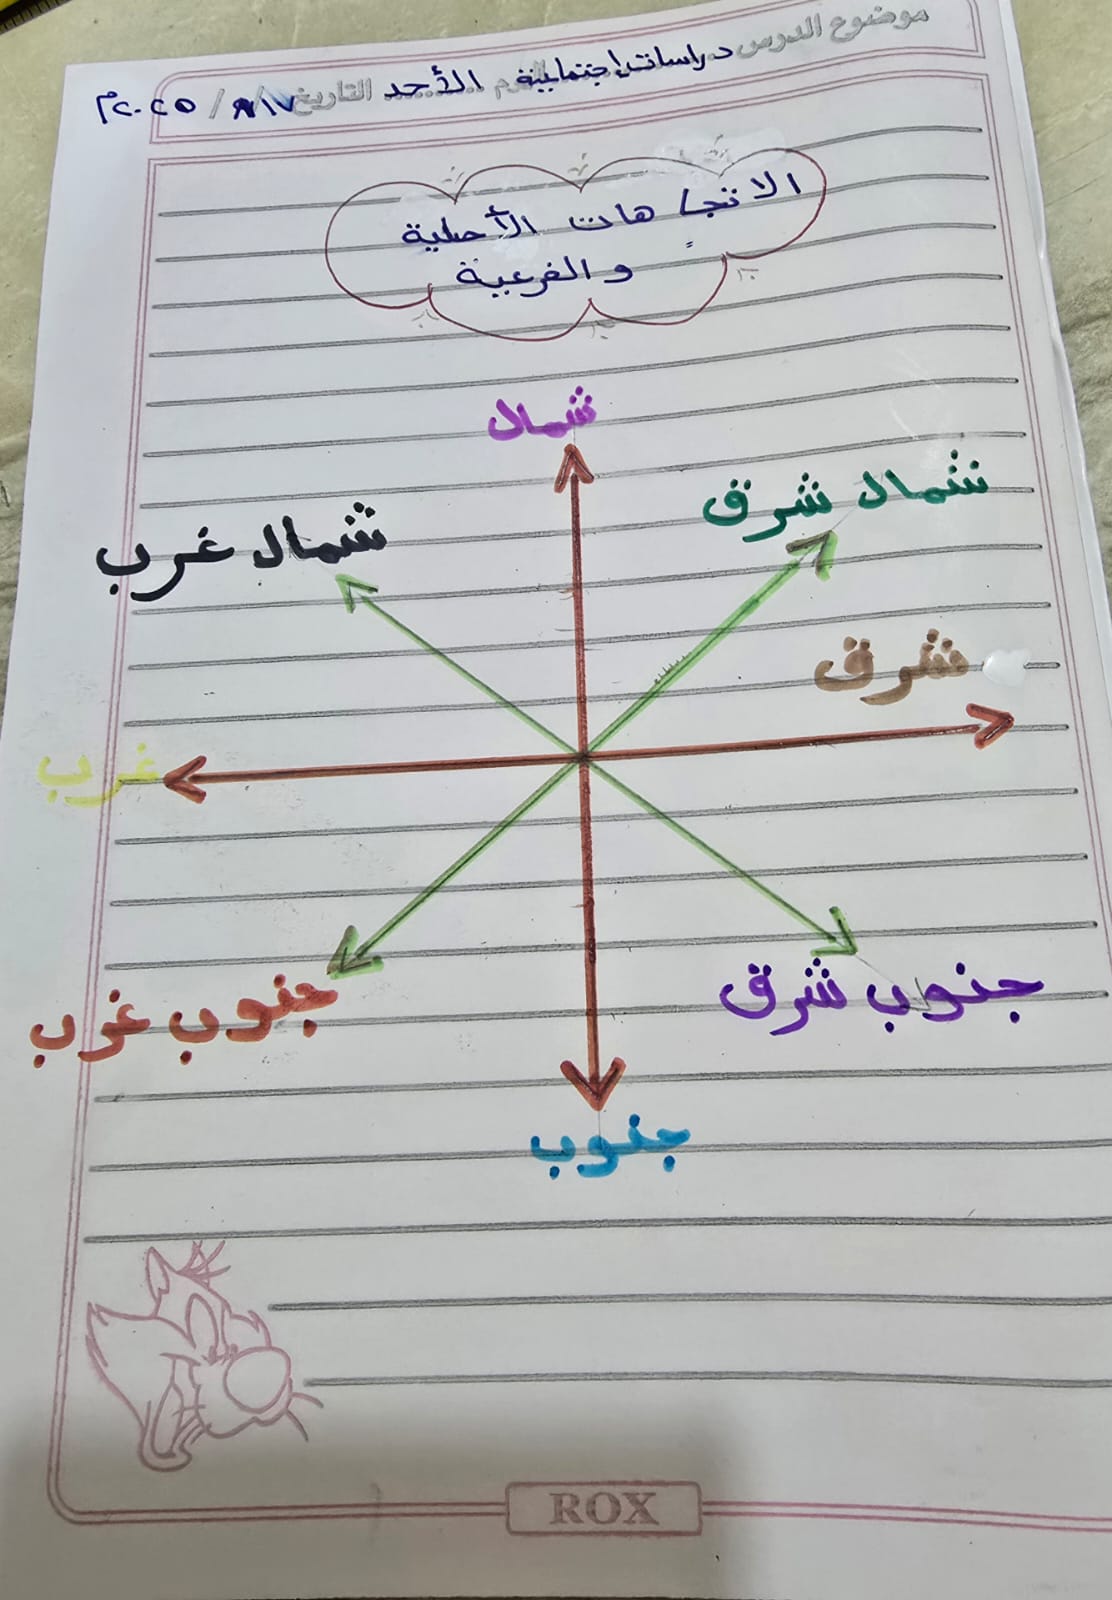 موضوع الدرس دراسات إجتماعية
اليوم الأحد التاريخ / / ٢٠٢٥م
الاتجاهات الأصلية
والفرعية
شمال
شمال شرق
شمال غرب
شرق
غرب
جنوب شرق
جنوب غرب
جنوب
ROX